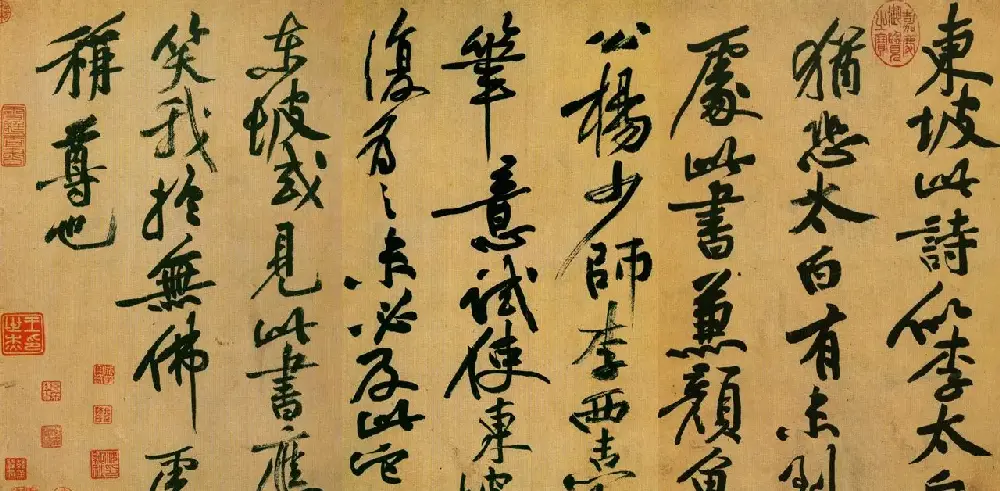 東坡此詩似李太白
猶恐太白有未到
處此書兼顏魯
公楊少師李西臺
筆意試使東坡
復為之未必及此它
東坡或見此書應
笑我於無佛處
稱尊也
嘉慶御覽之寶